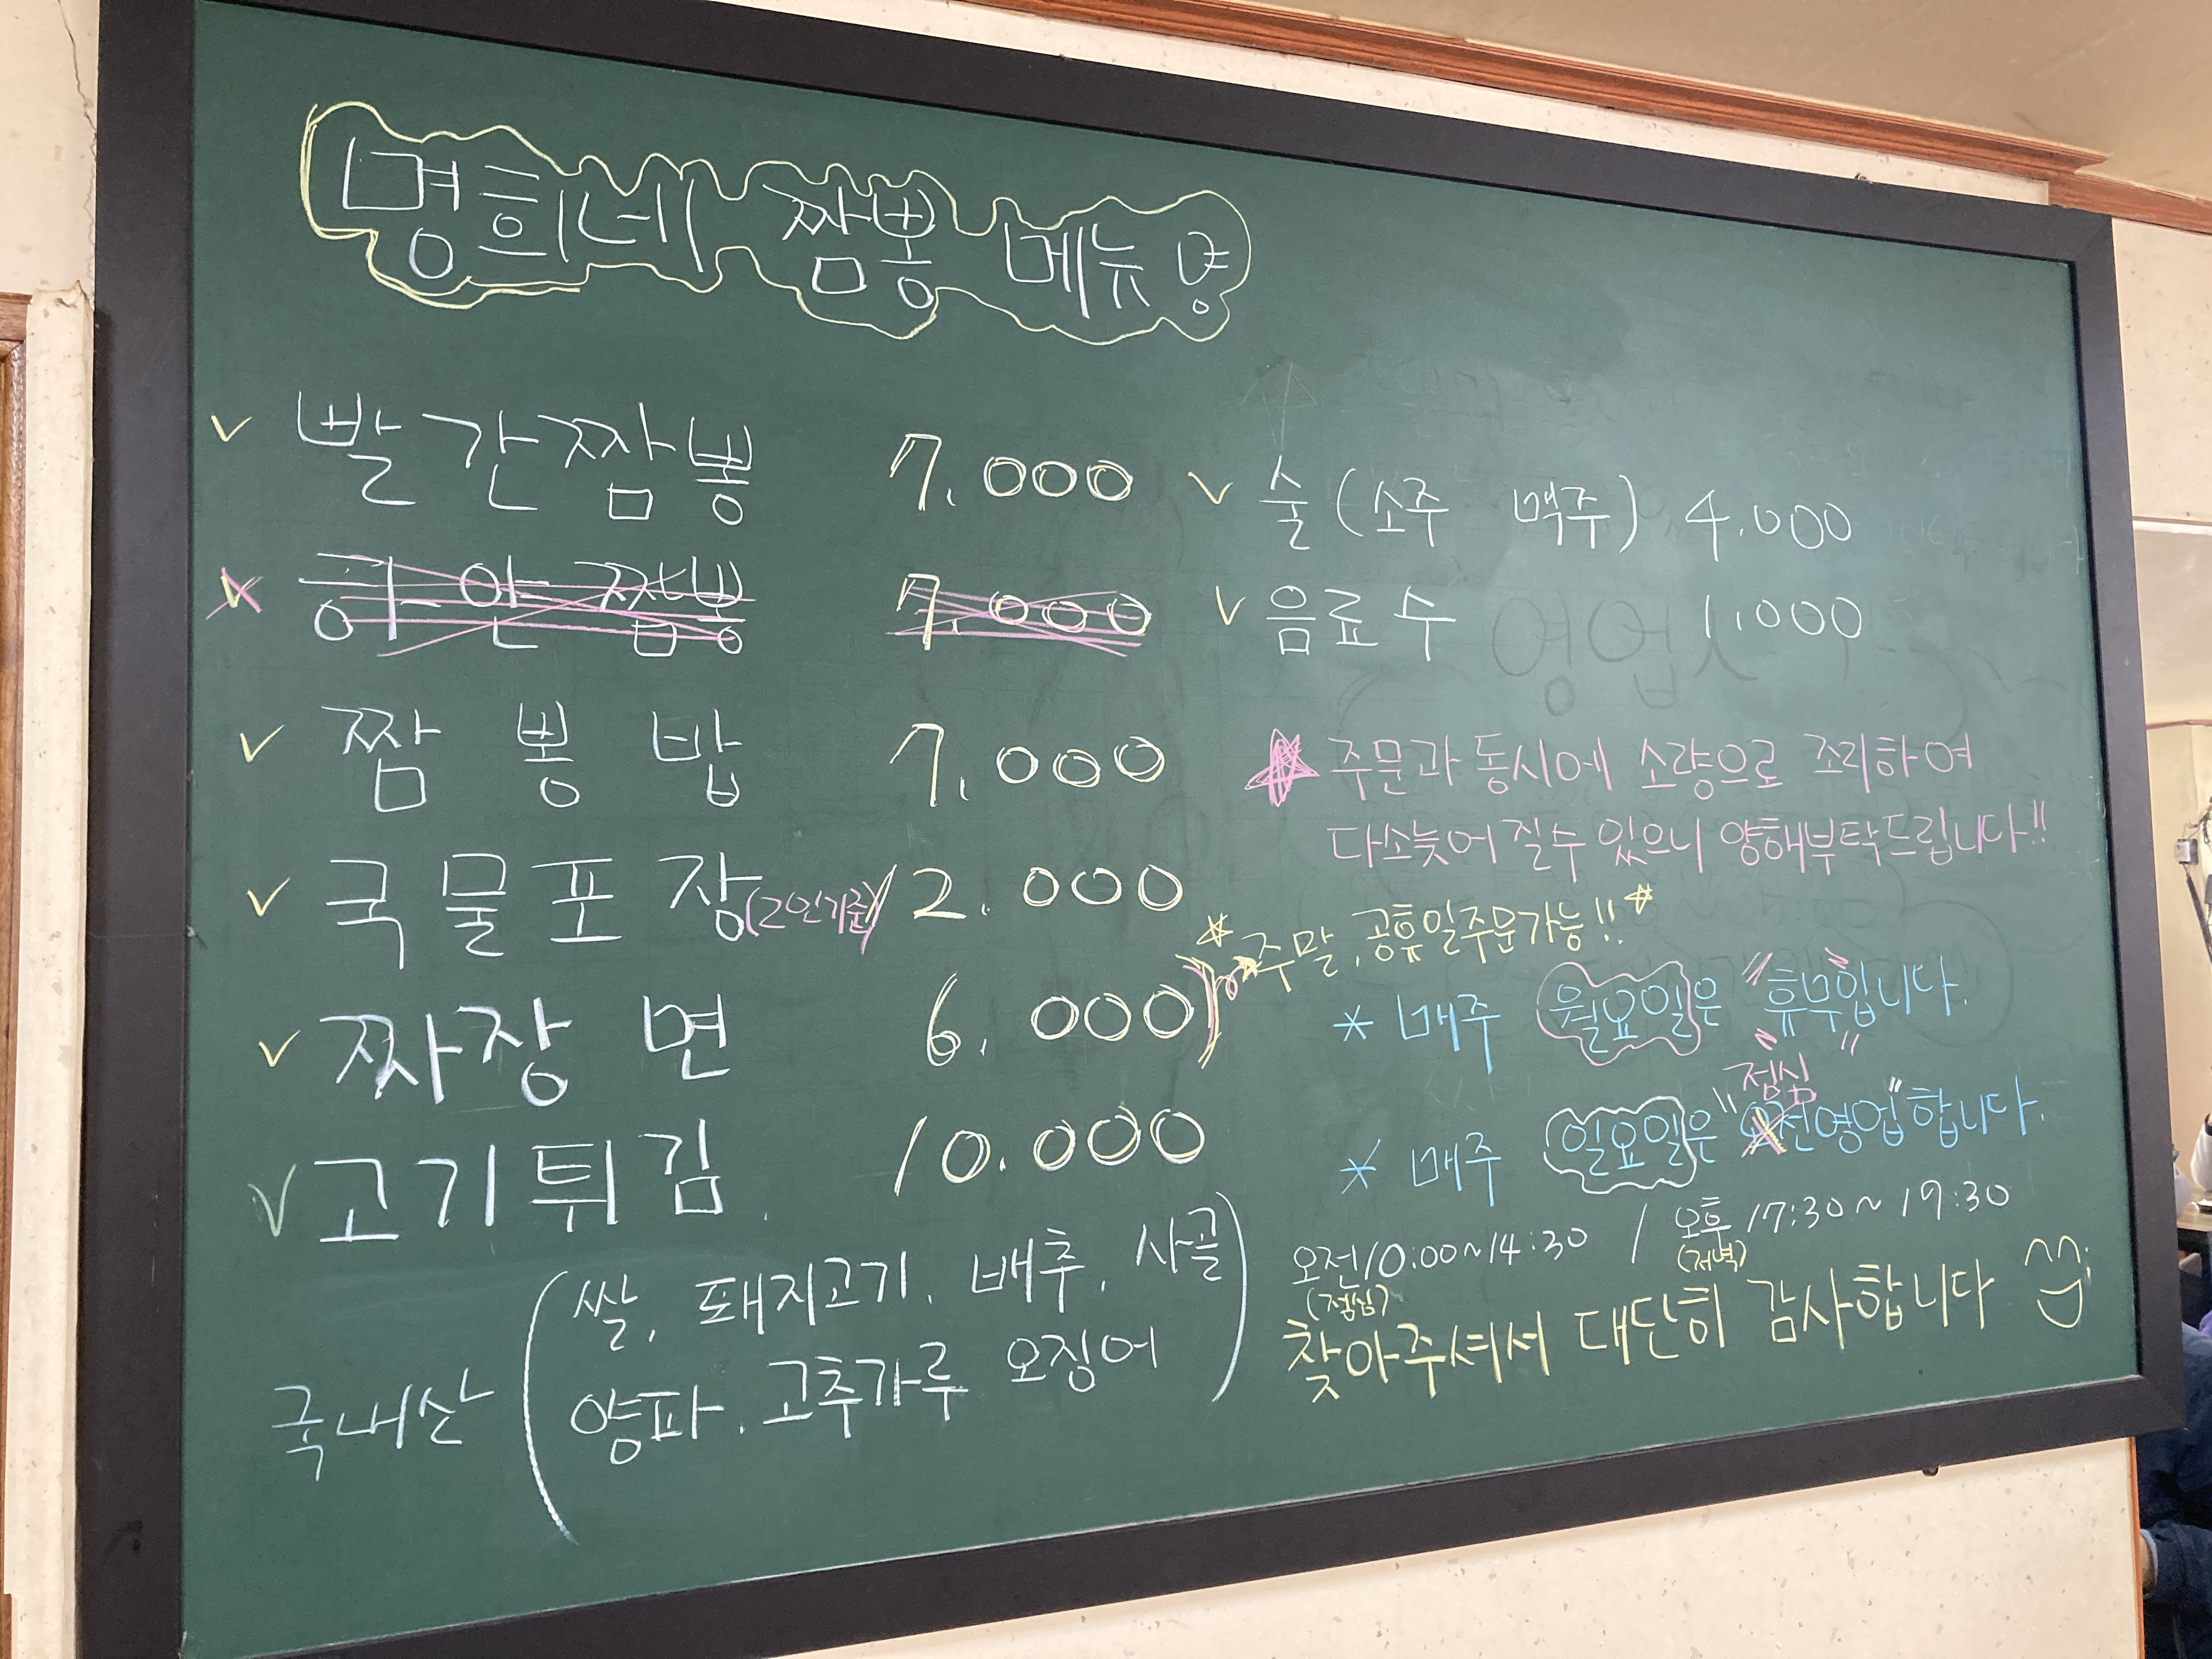 명희네 짬뽕 메뉴명
빨간짬뽕 7.000
하얀짬뽕 7.000
짬뽕밥 7.000
국물포장(2인기준) 12.000
짜장면 6.000
고기튀김 10.000
국내산 (쌀, 돼지고기, 배추, 사골
양파, 고추가루 오징어)
술(소주 맥주) 4.000
음료수 1.000
주문과 동시에 소량으로 조리하여
다소늦어 질수 있으니 양해부탁드립니다!!
주말, 공휴일주문가능!!
* 매주 월요일은 "휴무입니다."
점심
* 매주 일요일은 "오전영업"합니다.
오전10:00~14:30 / 오후17:30~19:30
(점심) (저녁)
찾아주셔서 대단히 감사합니다